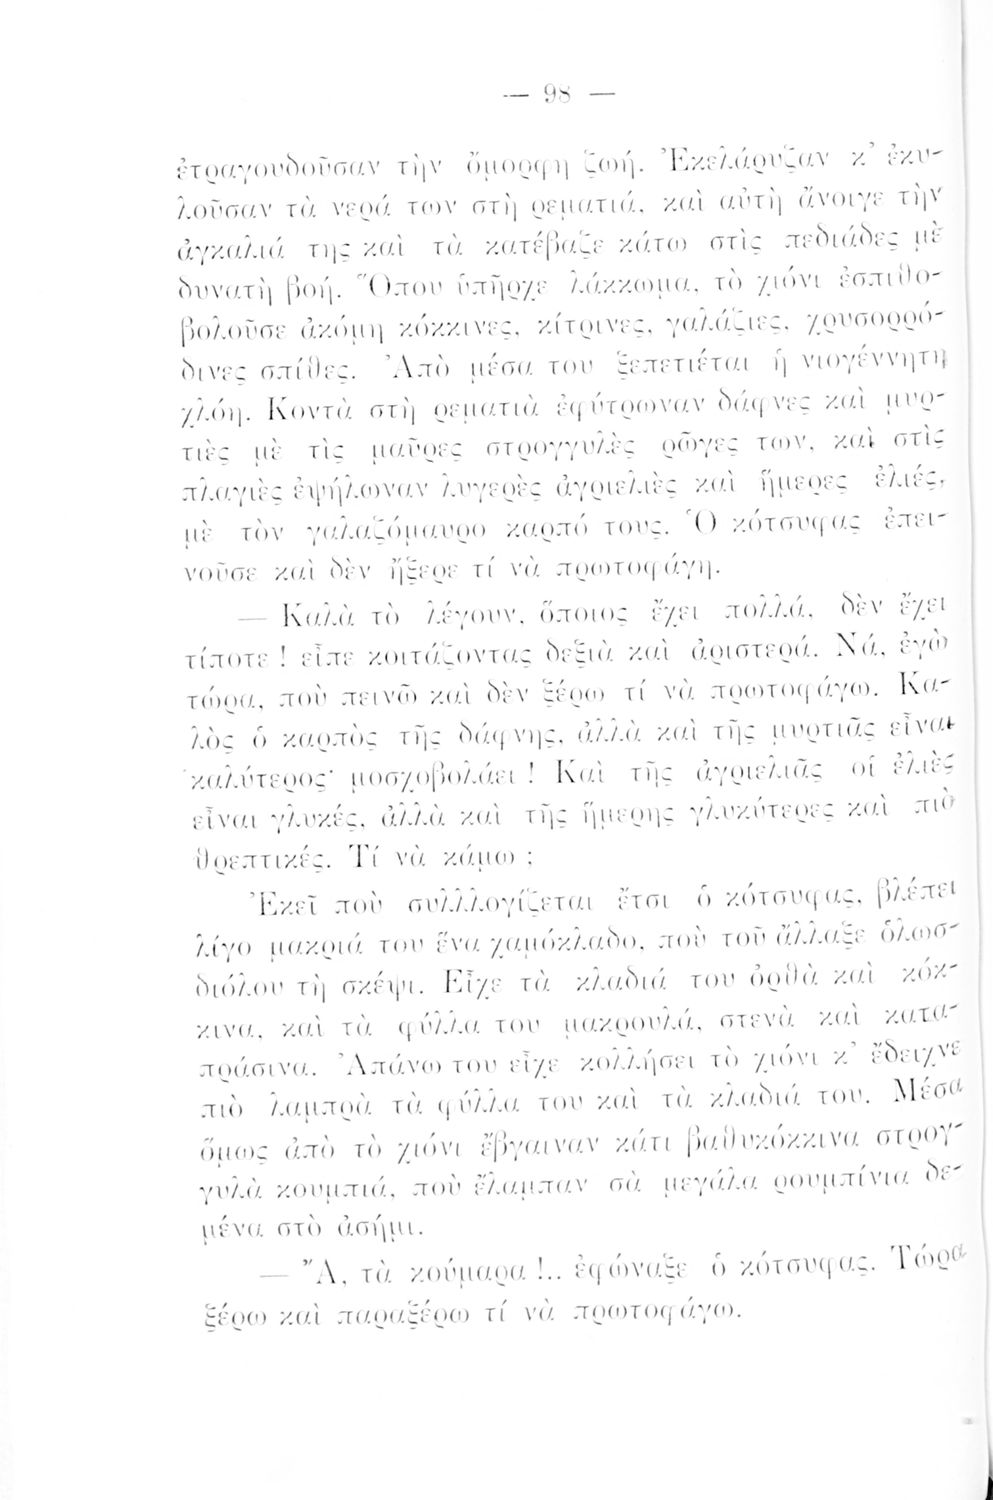 — 98 —
ἐτραγουδοῦσαν τὴν ὄμορφη ζωή. Ἐκελάρυζαν κ᾽ ἐκυ-
λοῦσαν τὰ νερά των στὴ ρεματιά, καὶ αὐτὴ ἄνοιγε τὴν
ἀγκαλιά της καὶ τὰ κατέβαζε κάτω στὶς πεδιάδες μὲ
δυνατὴ βοή. Ὅπου ὑπῆρχε λάκκωμα, τὸ χιόνι ἐσπιθο-
βολοῦσε ἀκόμη κόκκινες, κίτρινες, γαλάζιες, χρυσορρό-
δινες σπίθες. Ἀπὸ μέσα του ξεπετιέται ἡ νιογέννητη
χλόη. Κοντὰ στὴ ρεματιὰ ἐφύτρωναν δάφνες καὶ μυρ-
τιὲς μὲ τὶς μαῦρες στρογγυλὲς ρῶγες των, καὶ στὶς
πλαγιὲς ἐψήλωναν λυγερὲς ἀγριελιὲς καὶ ἥμερες ἐλιές,
μὲ τὸν γαλαζόμαυρο καρπό τους. Ὁ κότσυφας ἐπει-
νοῦσε καὶ δὲν ἤξερε τί νὰ πρωτοφάγη.
— Καλὰ τὸ λέγουν, ὅποιος ἔχει πολλά, δὲν ἔχει
τίποτε ! εἶπε κοιτάζοντας δεξιὰ καὶ ἀριστερά. Νά, ἐγὼ
τώρα, ποὺ πεινῶ καὶ δὲν ξέρω τί νὰ πρωτοφάγω. Κα-
λὸς ὁ καρπὸς τῆς δάφνης, ἀλλὰ καὶ τῆς μυρτιᾶς εἶναι
καλύτερος· μοσχοβολάει ! Καὶ τῆς ἀγριελιᾶς οἱ ἐλιὲς
εἶναι γλυκές, ἀλλὰ καὶ τῆς ἥμερης γλυκύτερες καὶ πιὸ
θρεπτικές. Τί νὰ κάμω ;
Ἐκεῖ ποὺ συλλλογίζεται ἔτσι ὁ κότσυφας, βλέπει
λίγο μακριά του ἕνα χαμόκλαδο, ποὺ τοῦ ἄλλαξε ὁλωσ-
διόλου τὴ σκέψι. Εἶχε τὰ κλαδιά του ὀρθὰ καὶ κόκ-
κινα, καὶ τὰ φύλλα του μακρουλά, στενὰ καὶ κατα-
πράσινα. Ἀπάνω του εἶχε κολλήσει τὸ χιόνι κ᾽ ἔδειχνε
πιὸ λαμπρὰ τὰ φύλλα του καὶ τὰ κλαδιά του. Μέσα
ὅμως ἀπὸ τὸ χιόνι ἔβγαιναν κάτι βαθυκόκκινα στρογ-
γυλὰ κουμπιά, ποὺ ἔλαμπαν σὰ μεγάλα ρουμπίνια δε-
μένα στὸ ἀσήμι.
— Ἄ, τὰ κούμαρα !.. ἐφώναξε ὁ κότσυφας. Τώρα
ξέρω καὶ παραξέρω τί νὰ πρωτοφάγω.